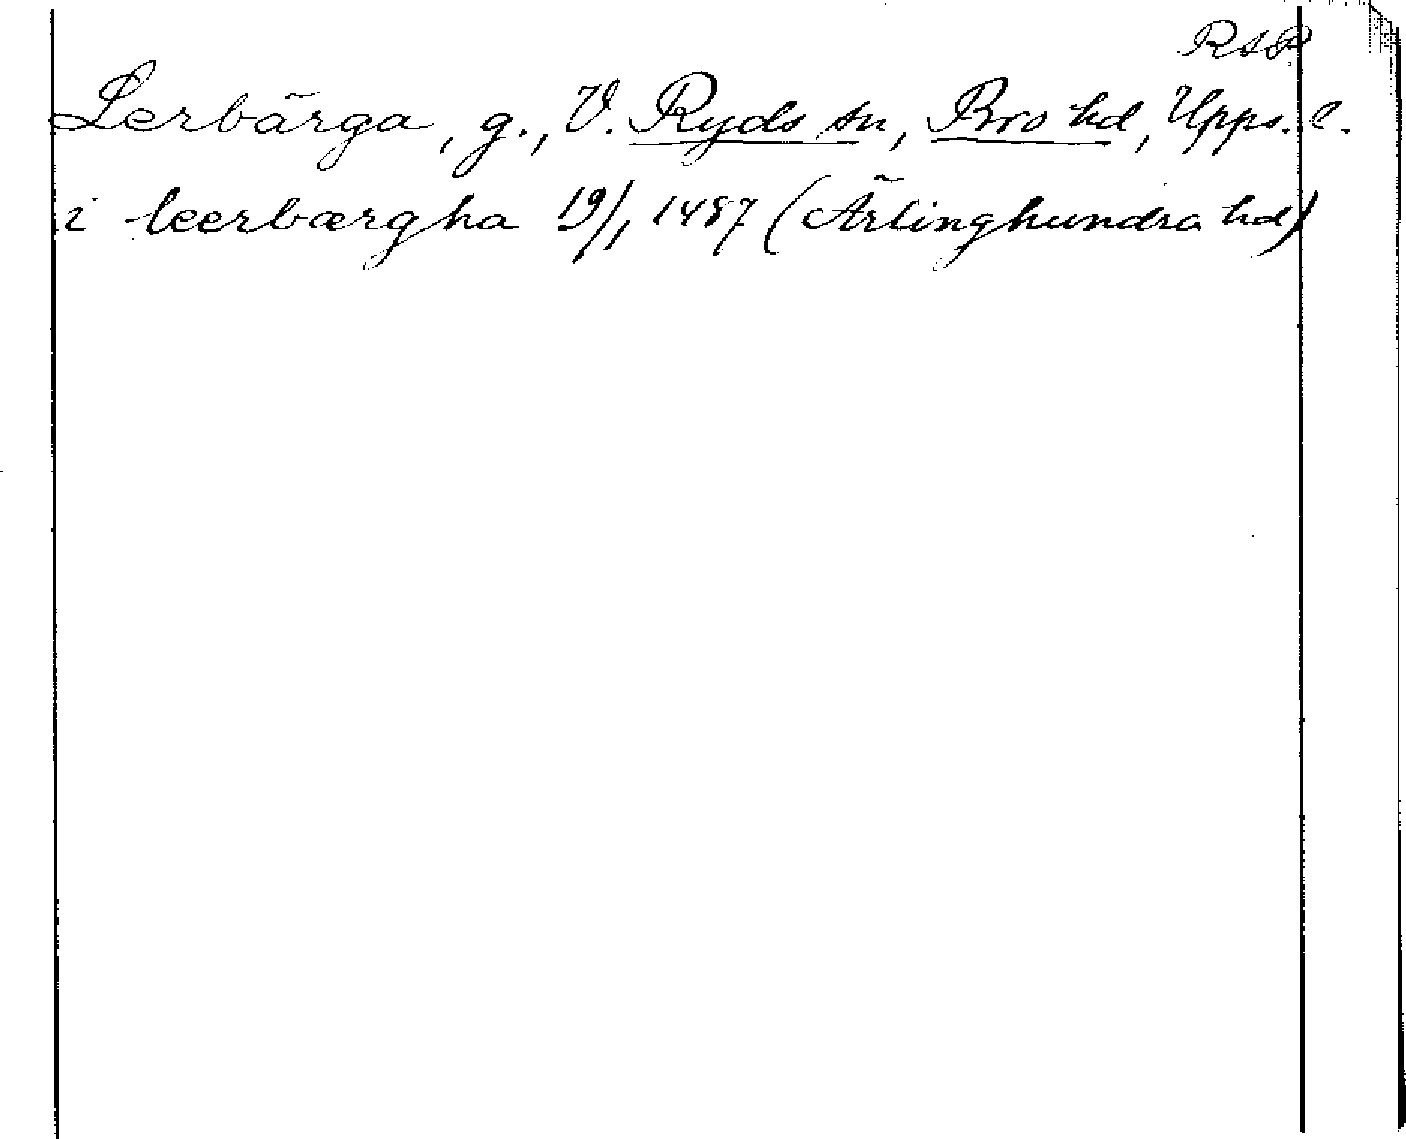 RAP
Lerbärga, g., V. Ryds sn, Bro hd, Upps. l.
i leerbærgha 19/1 1487 (Ärlinghundra hd)